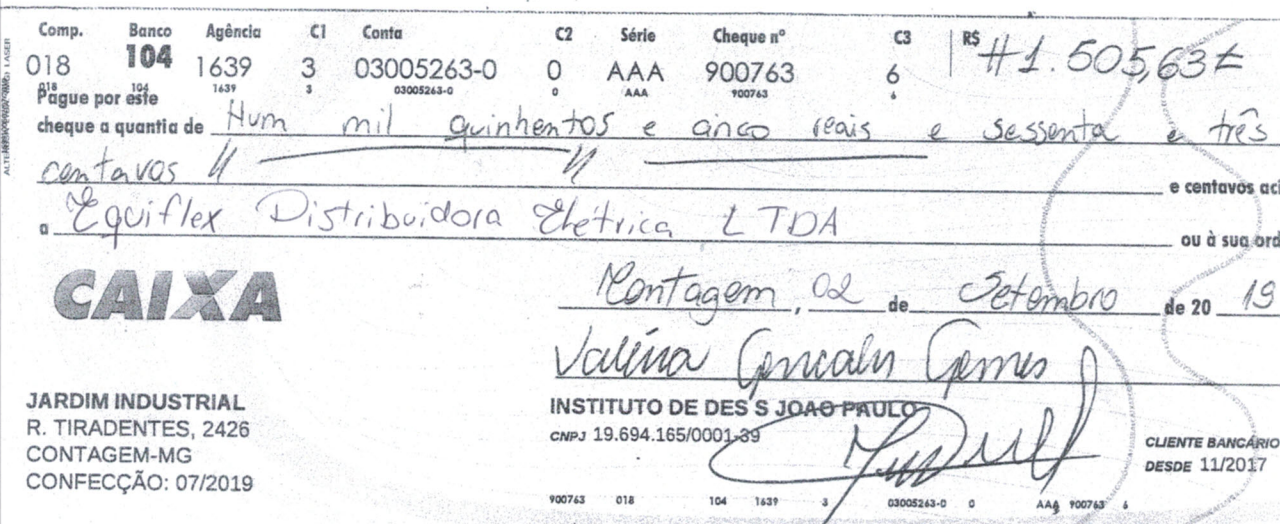 Comp. Banco Agência C1 Conta C2 Série Cheque nº C3 R$ #1.505,63#
018 104 1639 3 03005263-0 0 AAA 900763 6
018 104 1639 3 03005263-0 0 AAA 900763 6
Pague por este
cheque a quantia de Hum mil quinhentos e cinco reais e sessenta e três
centavos e centavos aci
a Equiflex Distribuidora Elétrica LTDA ou à sua ord
CAIXA
Contagem, 02 de Setembro de 20 19
Valéria Gonçalves Gomes
JARDIM INDUSTRIAL
R. TIRADENTES, 2426
CONTAGEM-MG
CONFECÇÃO: 07/2019
INSTITUTO DE DES S JOAO PAULO
CNPJ 19.694.165/0001-39
CLIENTE BANCÁRIO
DESDE 11/2017
900763 018 104 1639 3 03005263-0 0 AAA 900763 6